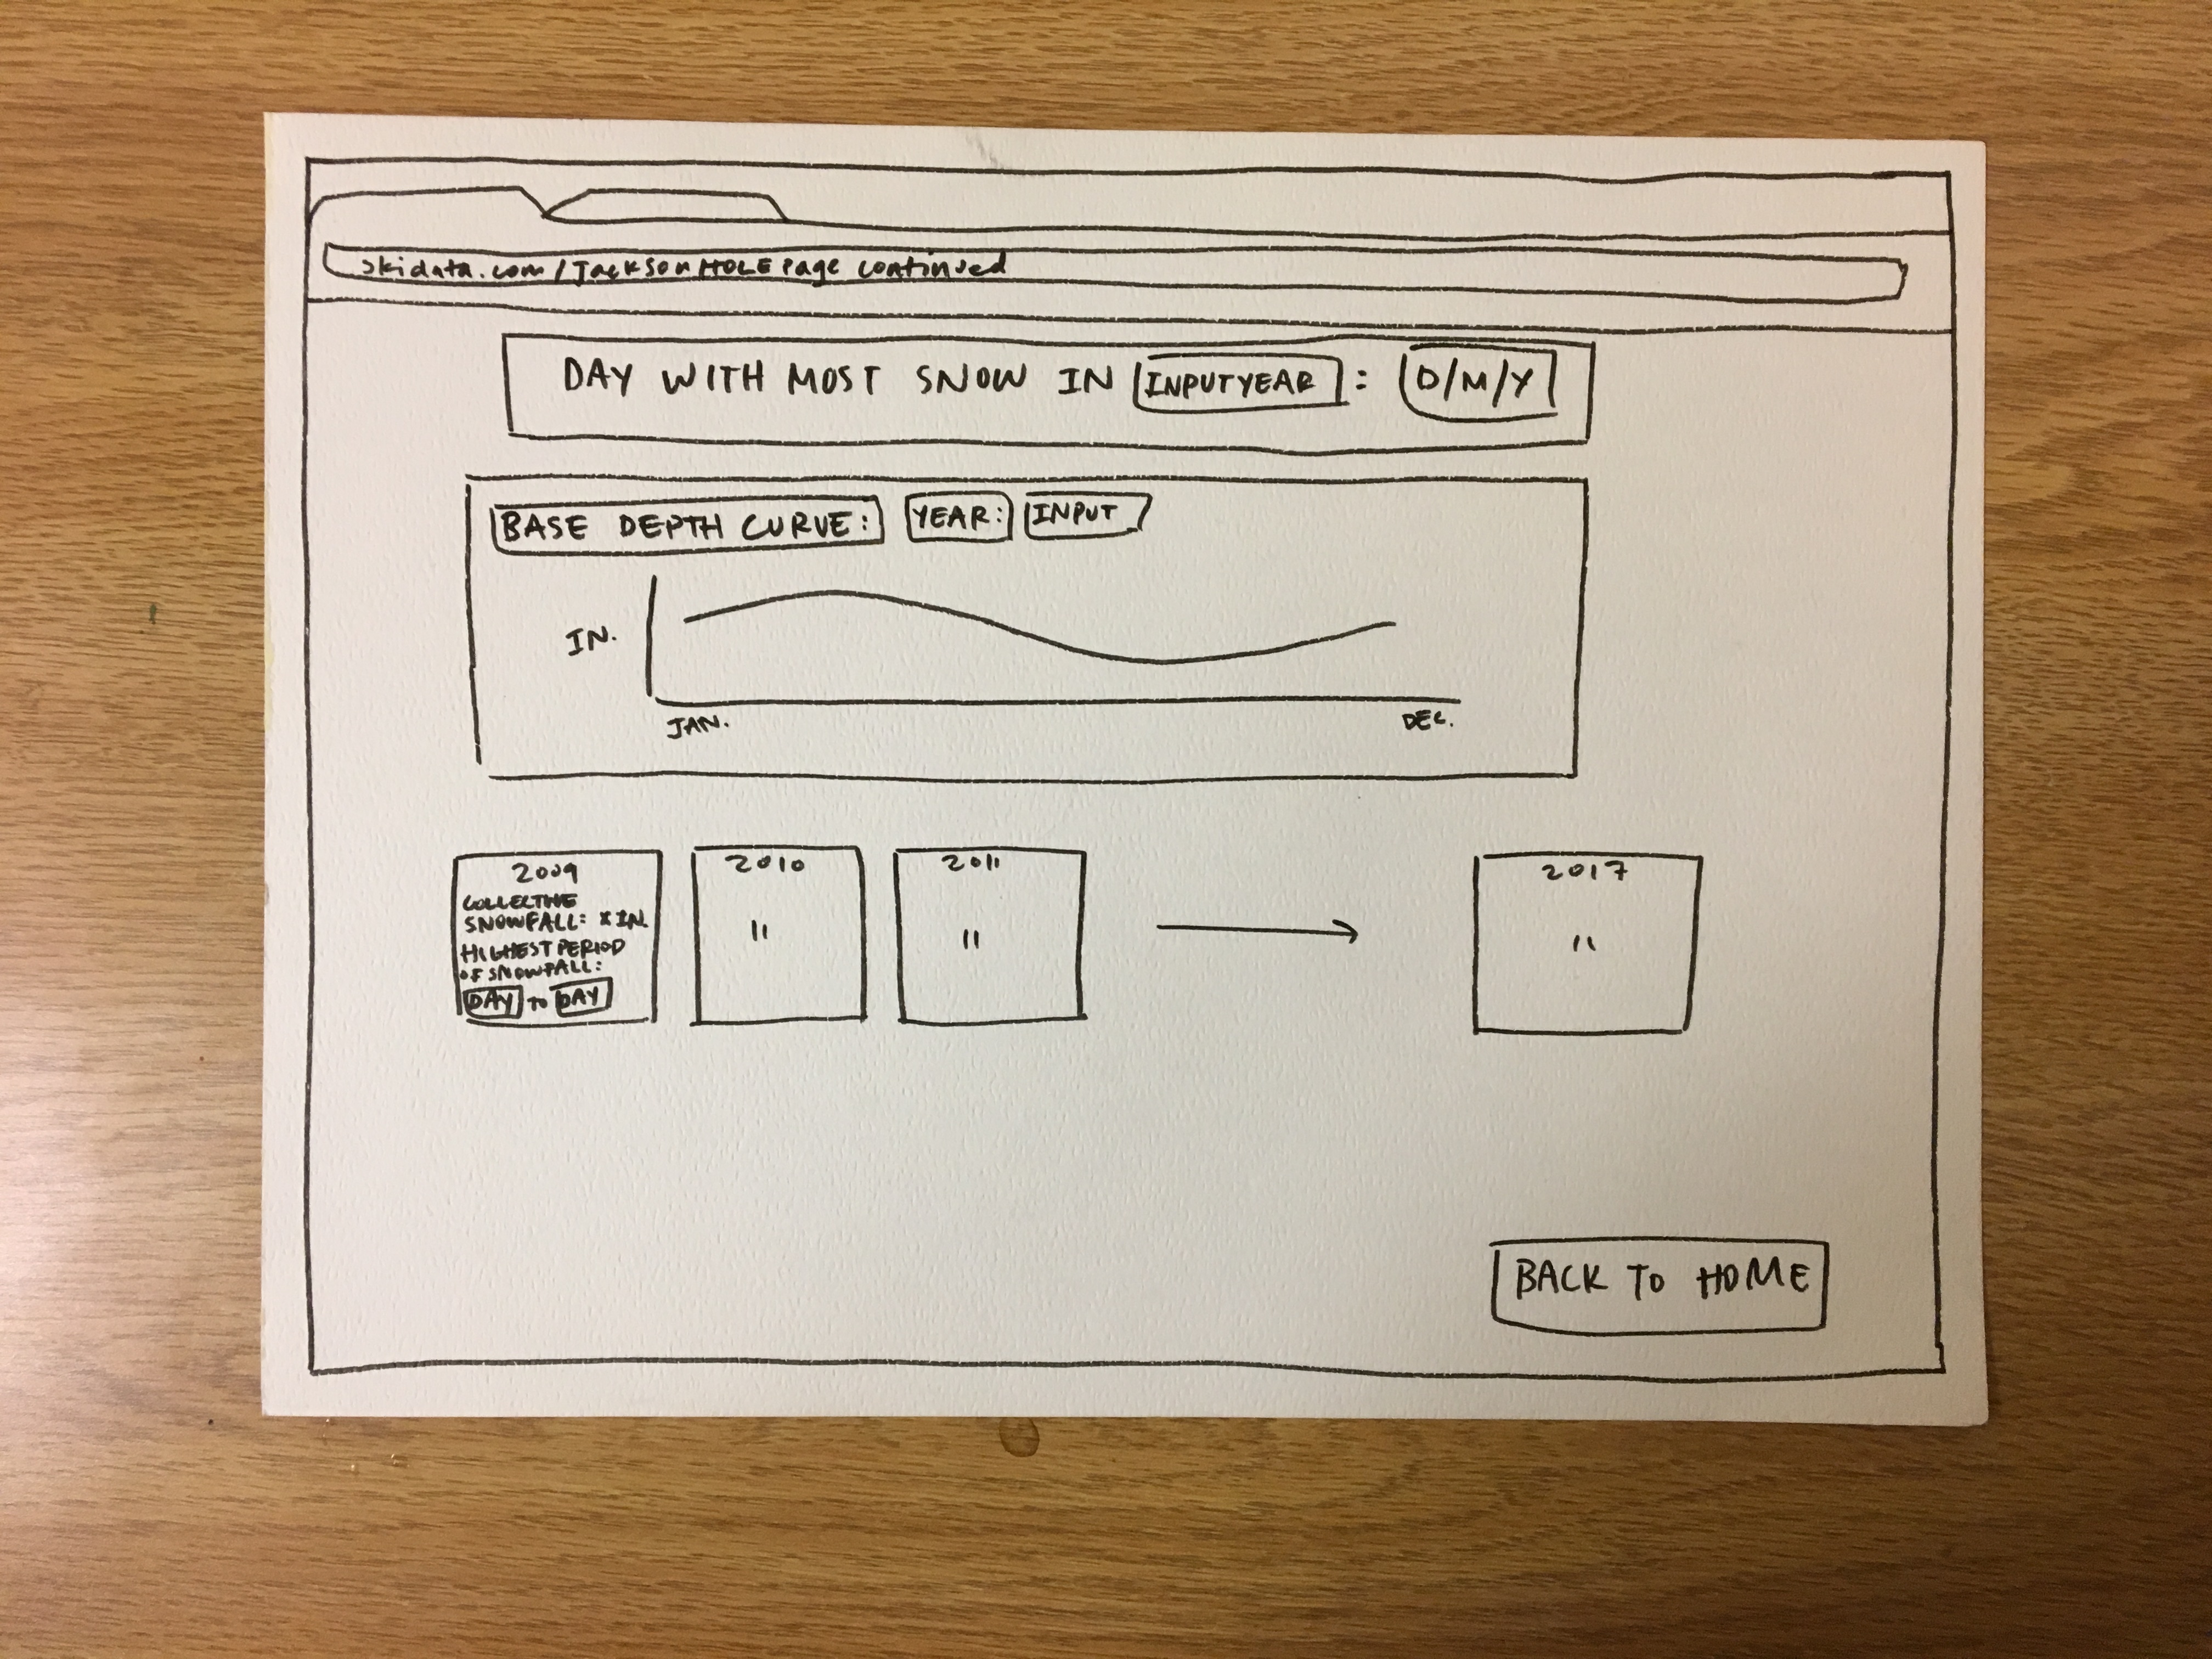 skidata.com/JacksonHOLEPage continued
DAY WITH MOST SNOW IN INPUTYEAR : D/M/Y
BASE DEPTH CURVE: YEAR: INPUT
IN.
JAN. DEC.
2009
COLLECTIVE
SNOWFALL: X IN
HIGHEST PERIOD
OF SNOWFALL:
DAY TO DAY
2010
"
2011
"
2017
"
BACK TO HOME